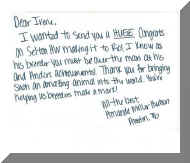 Dear Irene,
I wanted to send you a HUGE Congrats
on Selton HW making it to Rio! I know as
his breeder you must be over the moon at his
and Anders' achievements. Thank you for bringing
such an amazing animal into the world. You're
helping US breeders make a mark!
All the best,
Amanda